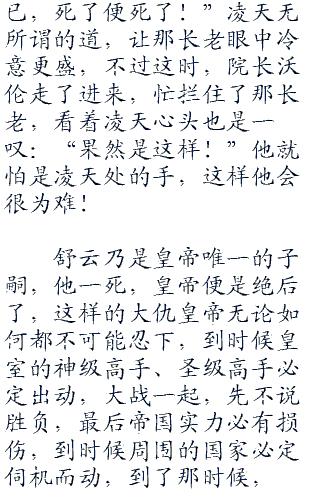 已，死了便死了！”凌天无
所谓的道，让那长老眼中冷
意更盛，不过这时，院长沃
伦走了进来，忙拦住了那长
老，看着凌天心头也是一
叹：“果然是这样！”他就
怕是凌天处的手，这样他会
很为难！
舒云乃是皇帝唯一的子
嗣，他一死，皇帝便是绝后
了，这样的大仇皇帝无论如
何都不可能忍下，到时候皇
室的神级高手、圣级高手必
定出动，大战一起，先不说
胜负，最后帝国实力必有损
伤，到时候周围的国家必定
伺机而动，到了那时候，